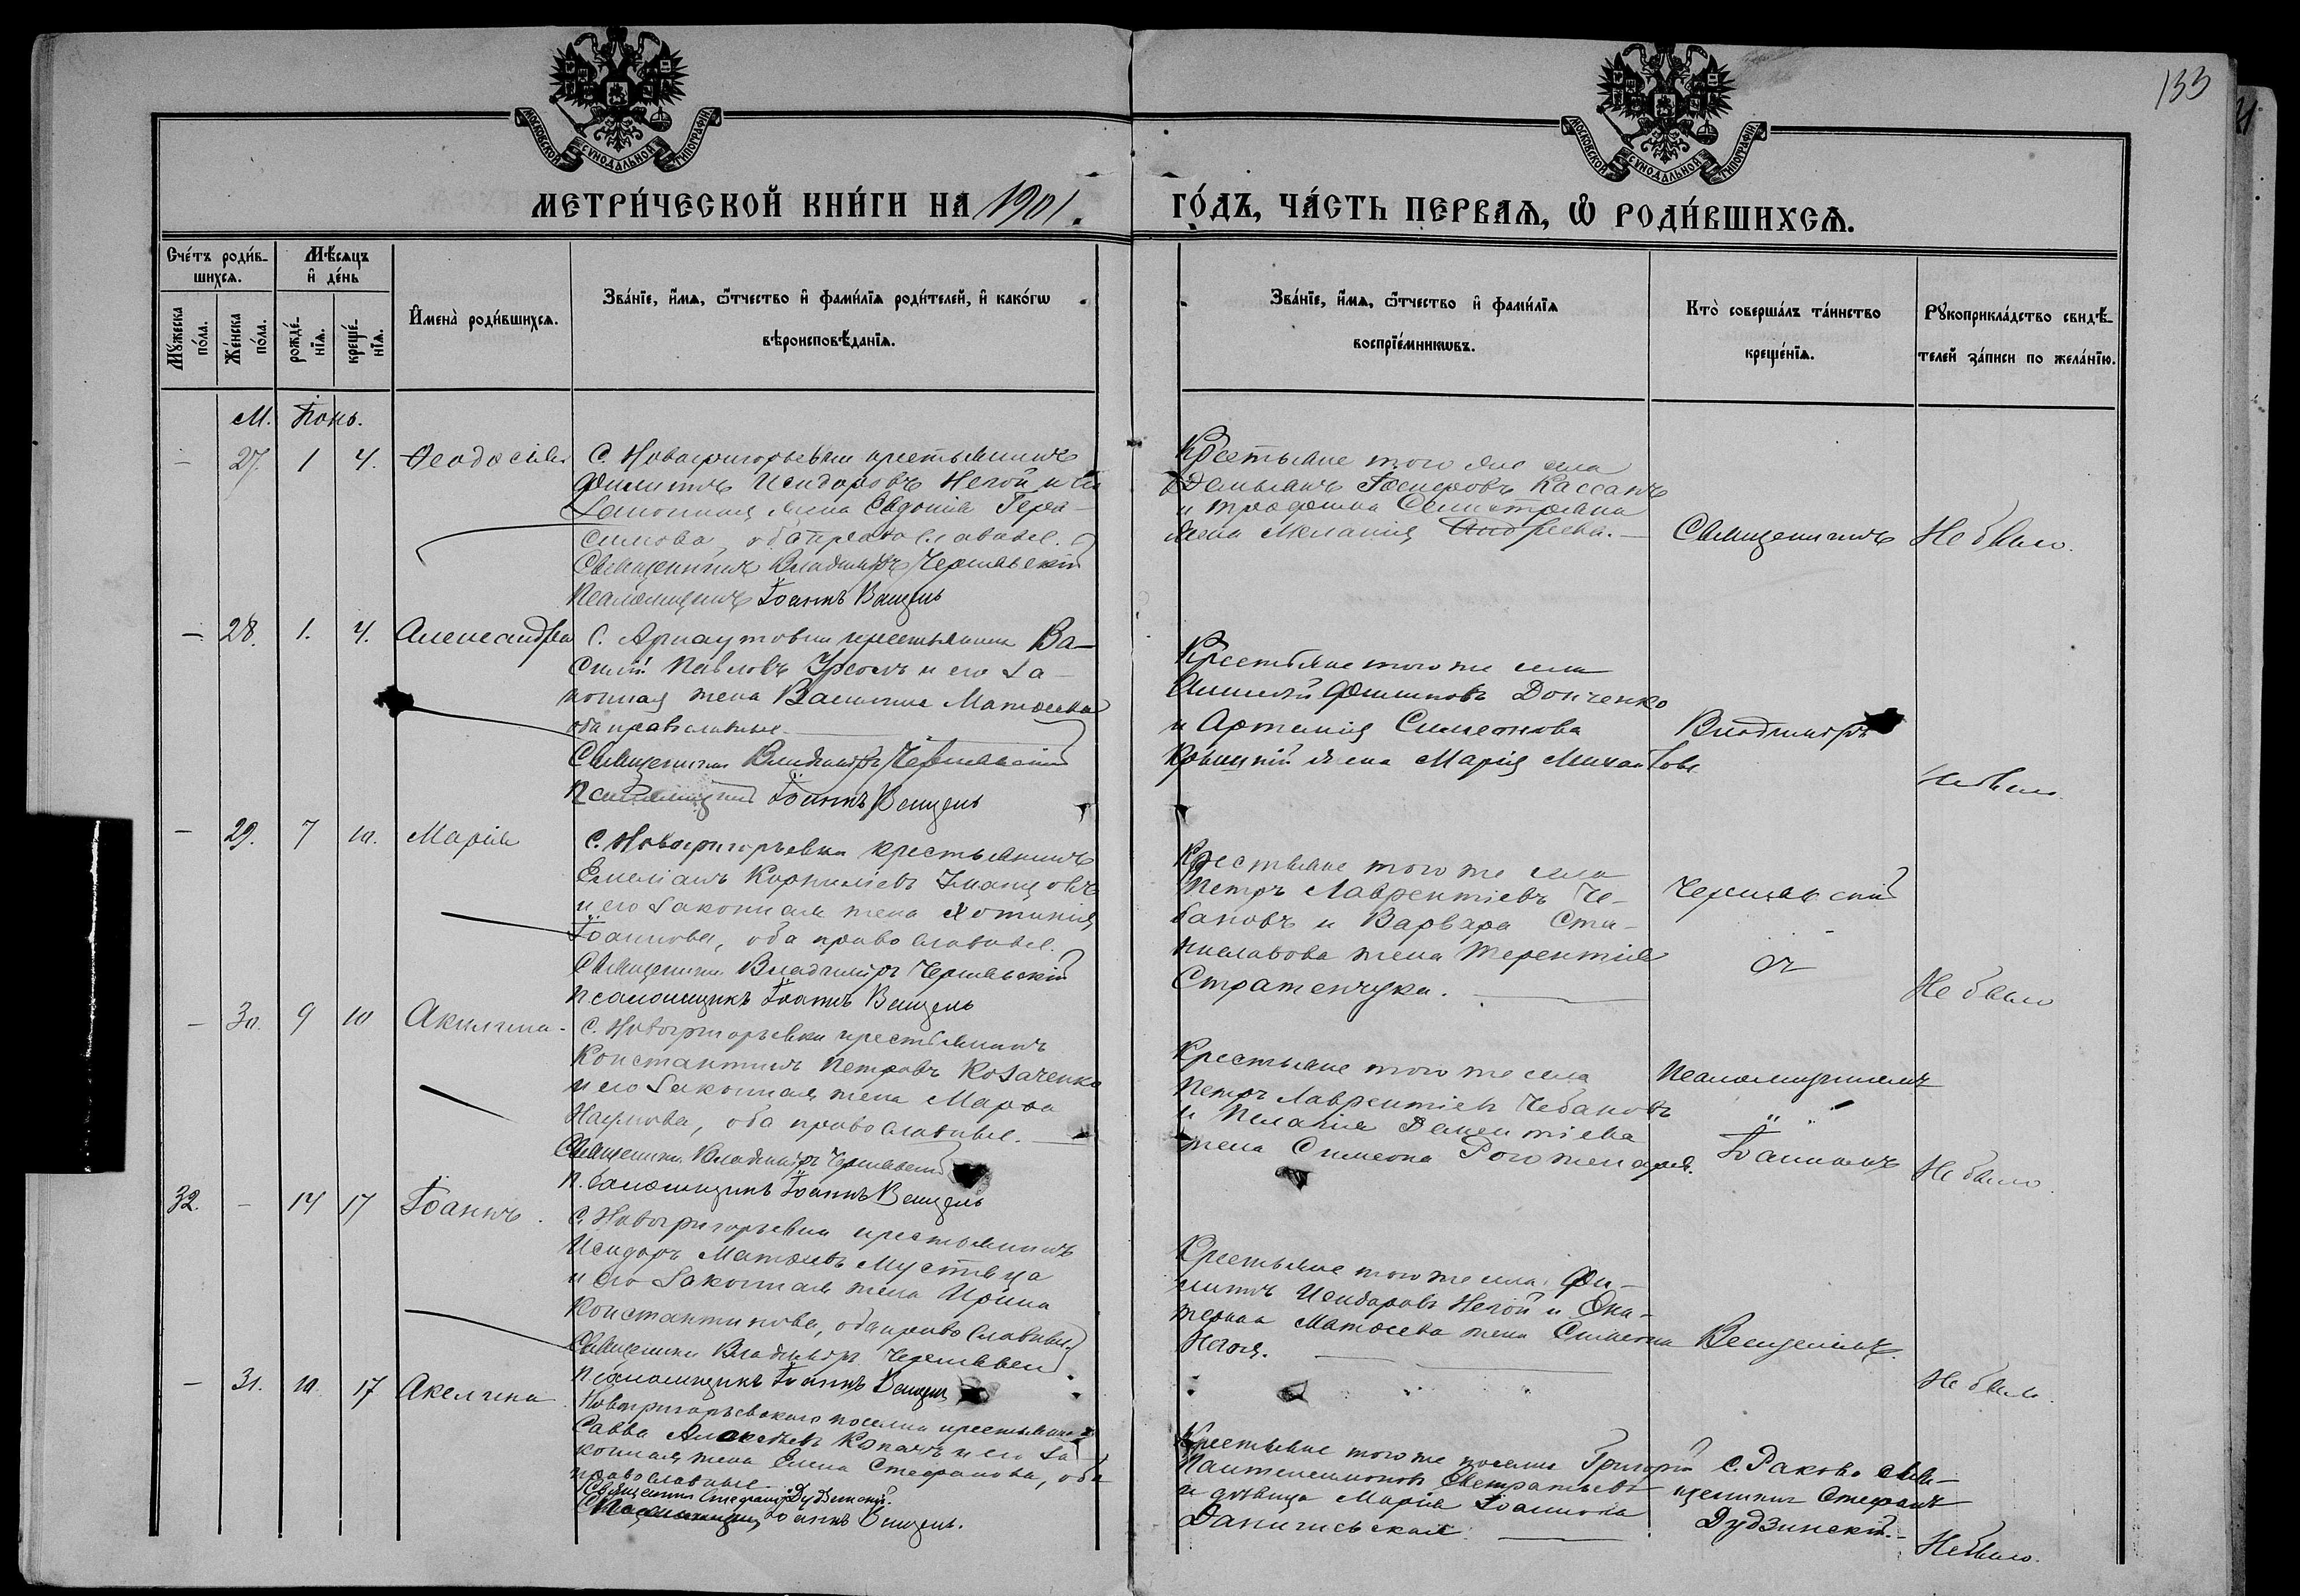 133
МОСКОВСКОЙ СѴНОДАЛЬНОЙ ТИПОГРАФІИ
МОСКОВСКОЙ СѴНОДАЛЬНОЙ ТИПОГРАФІИ
МЕТРИ́ЧЕСКОЙ КНИ́ГИ НА 1901. ГО́ДЪ, ЧА́СТЬ ПЕРВАѦ, Ѡ҆ РОДИ́ВШИХСѦ.
Сче́тъ роди́в-
шихсѧ.
Мѣ́сѧцъ
и҆ де́нь
Мꙋ́жеска
по́ла.
Же́нска
по́ла.
рожде́-
нїѧ.
креще́-
нїѧ.
И҆мена̀ роди́вшихсѧ.
Зва́нїе, и҆́мѧ, ѻ҆́тчество и҆ фами́лїѧ роди́телей, и҆ како́гѡ
вѣроисповѣ́данїѧ.
Зва́нїе, и҆́мѧ, ѻ҆́тчество и҆ фами́лїѧ
воспрїе́мникѡвъ.
Кто̀ соверша́лъ та́инство
креще́нїѧ.
Рꙋкоприкла́дство свидѣ́-
телей за́писи по жела́нїю.
М. Іюнь.
— 27. 1 4. Ѳеодосія
С. Новогригорьевки крестьянинъ
Филиппъ Исидоровъ Негой и его
законная жена Евдокія Гера-
симова, оба православные.
Священникъ Владиміръ Чернявскій
Псаломщикъ Іоаннъ Венцель
Крестьяне того же села
Касса́нъ
жена Меланія Андреева. —
Священникъ
Не было.
— 28. 1. 4. Александра
С. Арнаутовки крестьянинъ Ва-
силій Павловъ Урсолъ и его за-
конная жена Василиса Матѳеева
оба православные
Священникъ Владиміръ Чернявскій
Псаломщикъ Іоаннъ Венцель
Крестьяне того же села
Донченко
и Артемія Симеонова
жена Марія Михайлова
Владиміръ
Не было
— 29. 7 10. Марія
С. Новогригорьевки крестьянинъ
Емеліанъ Корниліевъ
и его законная жена Хотинія
Іоаннова, оба православные.
Священникъ Владиміръ Чернявскій
Псаломщикъ Іоаннъ Венцель
Крестьяне того же села
Петръ Лаврентіевъ Че-
бановъ и Варвара Ста-
ниславова жена Терентія
Стратенчука.
Чернявскій
съ
Не было
— 30. 9 10 Акилина
С. Новогригорьевки крестьянинъ
Константинъ Петровъ Козаченко
и его законная жена Марѳа
Наумова, оба православные. —
Священникъ Владиміръ Чернявскій
Псаломщикъ Іоаннъ Венцель
Крестьяне того же села
Петръ Лаврентіевъ Чебановъ
и Пелагія
жена Симеона
Псаломщикомъ
Іоанномъ
Не было.
32. — 14 17 Іоаннъ.
С. Новогригорьевки крестьянинъ
Исидоръ Матѳеевъ Мустяца
и его законная жена Ирина
Константинова, оба православные.
Священникъ Владиміръ Чернявскій
Псаломщикъ Іоаннъ Венцель
Крестьяне того же села Фи-
липпъ Исидоровъ Негой и Ека-
терина Матѳеева жена Симеона
Негоя.
Венцелемъ.
Не было.
— 31. 10. 17 Акилина
Новогригорьевскаго поселка крестьянинъ
Савва Алексѣевъ Копачъ и его за-
конная жена Елена Стефанова, оба
православные
Священникъ Стефанъ Дудзинскій.
Псаломщикъ Іоаннъ Венцель.
Крестьяне того же поселка Григорій
Пантелеимоновъ
и дѣвица Марія Іоаннова
С. Ракова свя-
щенникъ Стефанъ
Дудзинскій. —
Не было.